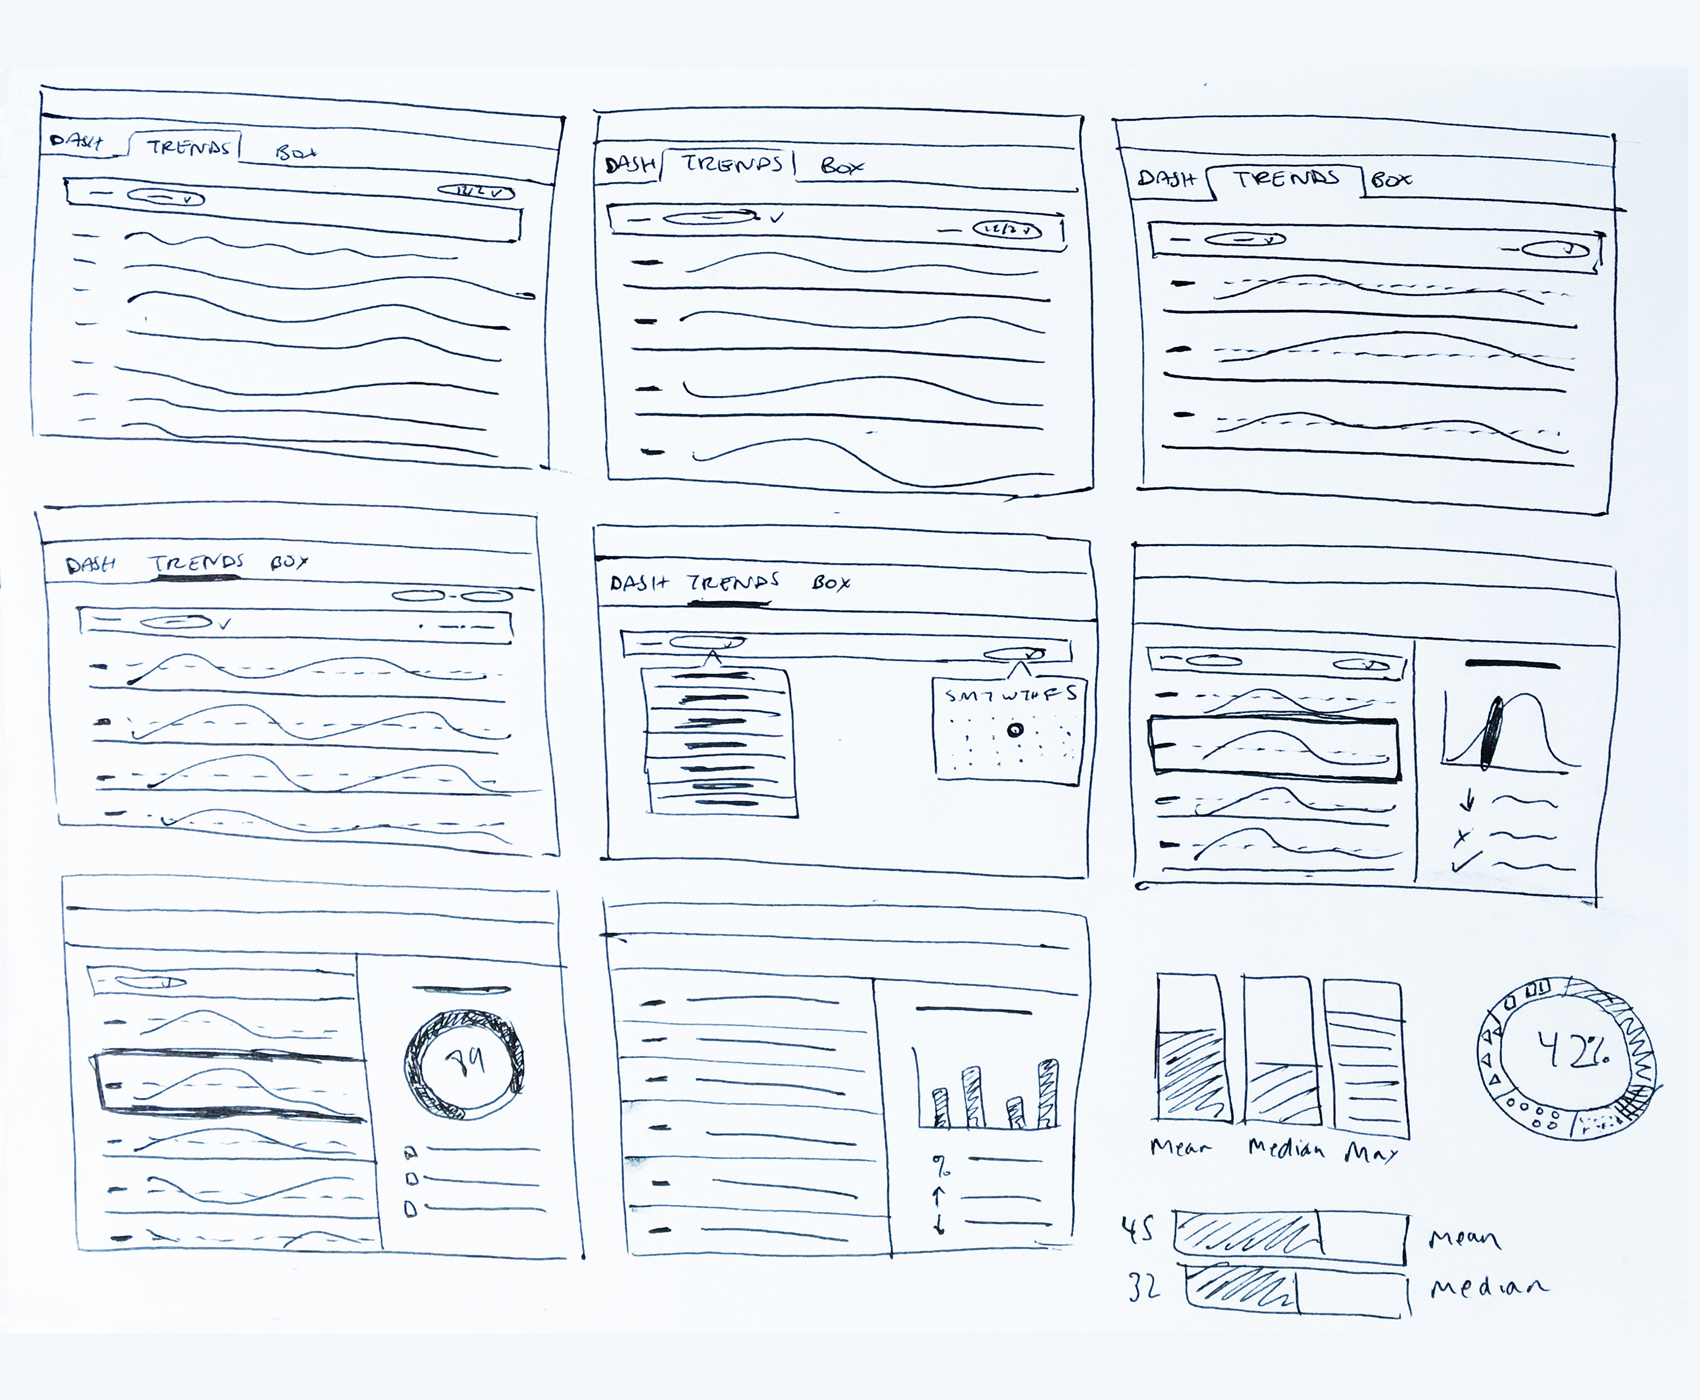 DASH TRENDS BOX
12/2
DASH TRENDS BOX
12/2
DASH TRENDS BOX
DASH TRENDS BOX
DASH TRENDS BOX
S M T W TH F S
89
%
Mean Median Max
42%
45 Mean
32 Median